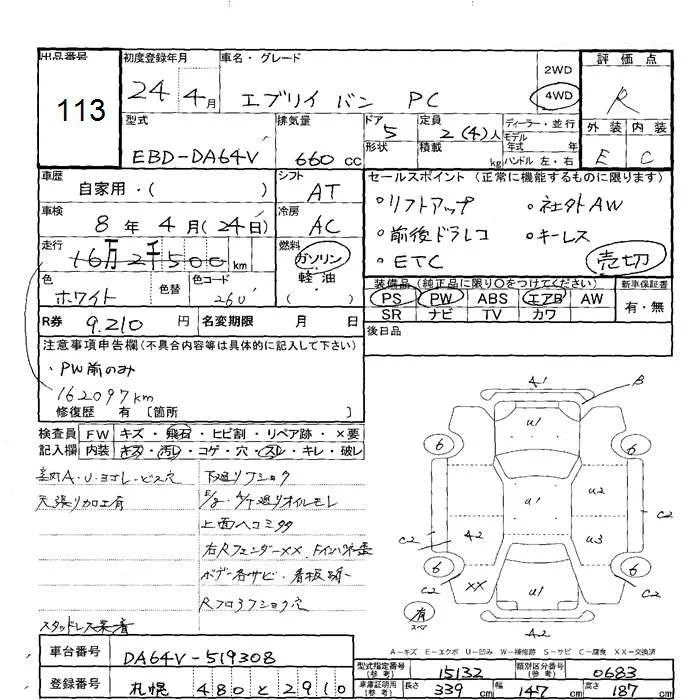 出品番号
113
初度登録年月
24年 4月
車名・グレード
エブリイ バン PC
2WD
4WD
評価点
R
外装 内装
E C
型式
EBD-DA64V
排気量
660 cc
ドア
5
形状
定員
2(4)人
積載
kg
ディーラー・並行
モデル
年式 年
ハンドル 左・右
車歴
自家用・( )
シフト
AT
車検
8年 4月(24日)
冷房
AC
走行
16万2千500km
燃料
ガソリン
軽油
( )
色
ホワイト
色替
色コード
26U
R券
9.210 円
名変期限 月 日
セールスポイント(正常に機能するものに限ります)
・リフトアップ ・社外AW
・前後ドラレコ ・キーレス
・ETC
売切
装備品(純正品に限り○をつけてください)
PS PW ABS エアB AW
SR ナビ TV カワ
新車保証書
有・無
後日品
注意事項申告欄(不具合内容等は具体的に記入して下さい)
・PW前のみ
162097km
修復歴 有 〔箇所 〕
検査員
記入欄
FW キズ・飛石・ヒビ割・リペア跡・×要
内装 キズ・汚レ・コゲ・穴・スレ・キレ・破レ
A・U・ヨゴレ・ビス穴
天張り加工有
下廻りフショク
E/g. A/T廻りオイルモレ
上面ヘコミ多々
右Rフェンダーxx.
ボデー各サビ・看板跡
Rフロアフショク穴
スタッドレス装着
4.1
B
u1
6
6
u1
u2
C2
C2
42
u3
6
6
xx
u1
C2
C2
有
スペア
A2
A-キズ E-エクボ U-凹み W-補修跡 S-サビ C-腐食 XX-交換済
車台番号
DA64V-519308
登録番号
札幌 480 と 2910
型式指定番号
(参考)
15132
類別区分番号
(参考)
0683
車庫証明用
(参考)
長さ 339 cm
幅 147 cm
高さ 187 cm